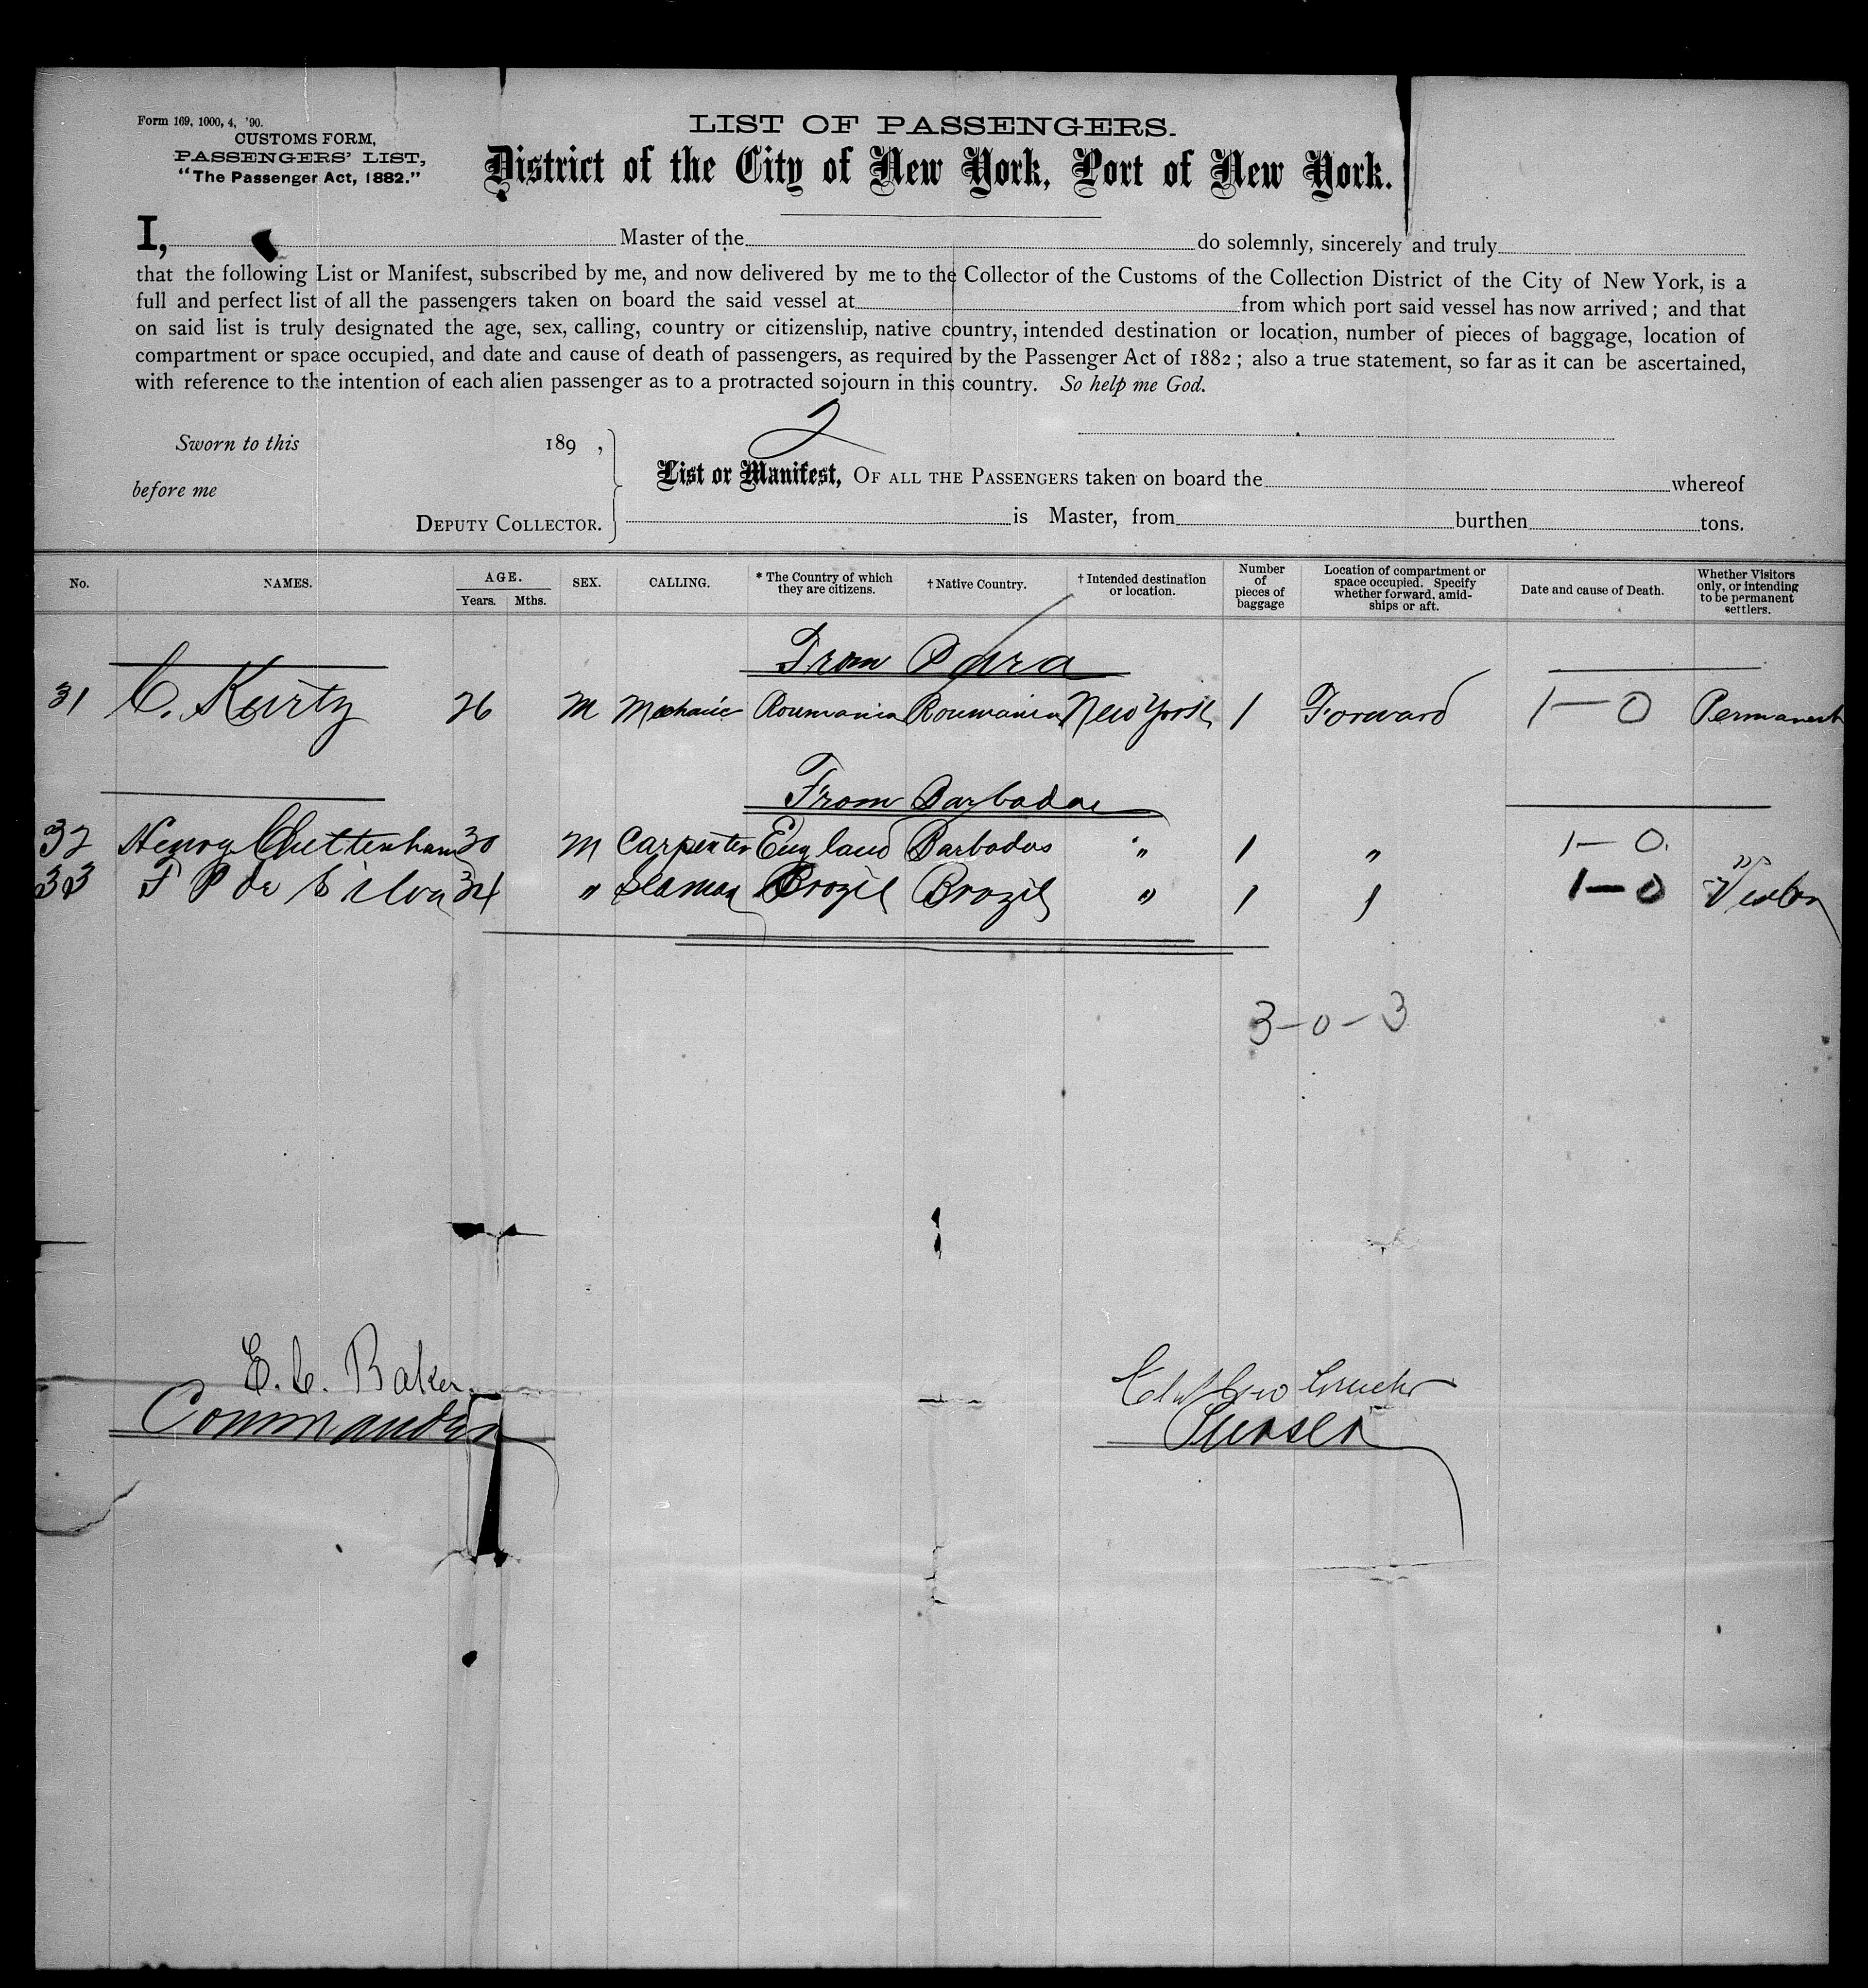 Form 169, 1000, 4, '90.
CUSTOMS FORM,
PASSENGERS' LIST,
"The Passenger Act, 1882."
LIST OF PASSENGERS.
District of the City of New York, Port of New York.
I, Master of the do solemnly, sincerely and truly
that the following List or Manifest, subscribed by me, and now delivered by me to the Collector of the Customs of the Collection District of the City of New York, is a
full and perfect list of all the passengers taken on board the said vessel at from which port said vessel has now arrived; and that
on said list is truly designated the age, sex, calling, country or citizenship, native country, intended destination or location, number of pieces of baggage, location of
compartment or space occupied, and date and cause of death of passengers, as required by the Passenger Act of 1882; also a true statement, so far as it can be ascertained,
with reference to the intention of each alien passenger as to a protracted sojourn in this country. So help me God.
2
Sworn to this 189 ,
List or Manifest, OF ALL THE PASSENGERS taken on board the whereof
before me
DEPUTY COLLECTOR. is Master, from burthen tons.
No. NAMES. AGE. Years. Mths. SEX. CALLING. * The Country of which they are citizens. † Native Country. † Intended destination or location. Number of pieces of baggage Location of compartment or space occupied. Specify whether forward, amidships or aft. Date and cause of Death. Whether Visitors only, or intending to be permanent settlers.
From Para
31 C. Kurtz 26 M Mechanic Roumania Roumania New York 1 Forward 1-0 Permanent
From Barbados
32 Henry Chettenham 30 M Carpenter England Barbados " 1 " 1-0.
33 F P de Silva 34 " Seaman Brazil Brazil " 1 1-0
3-0-3
E. C. Baker
Commander
Purser